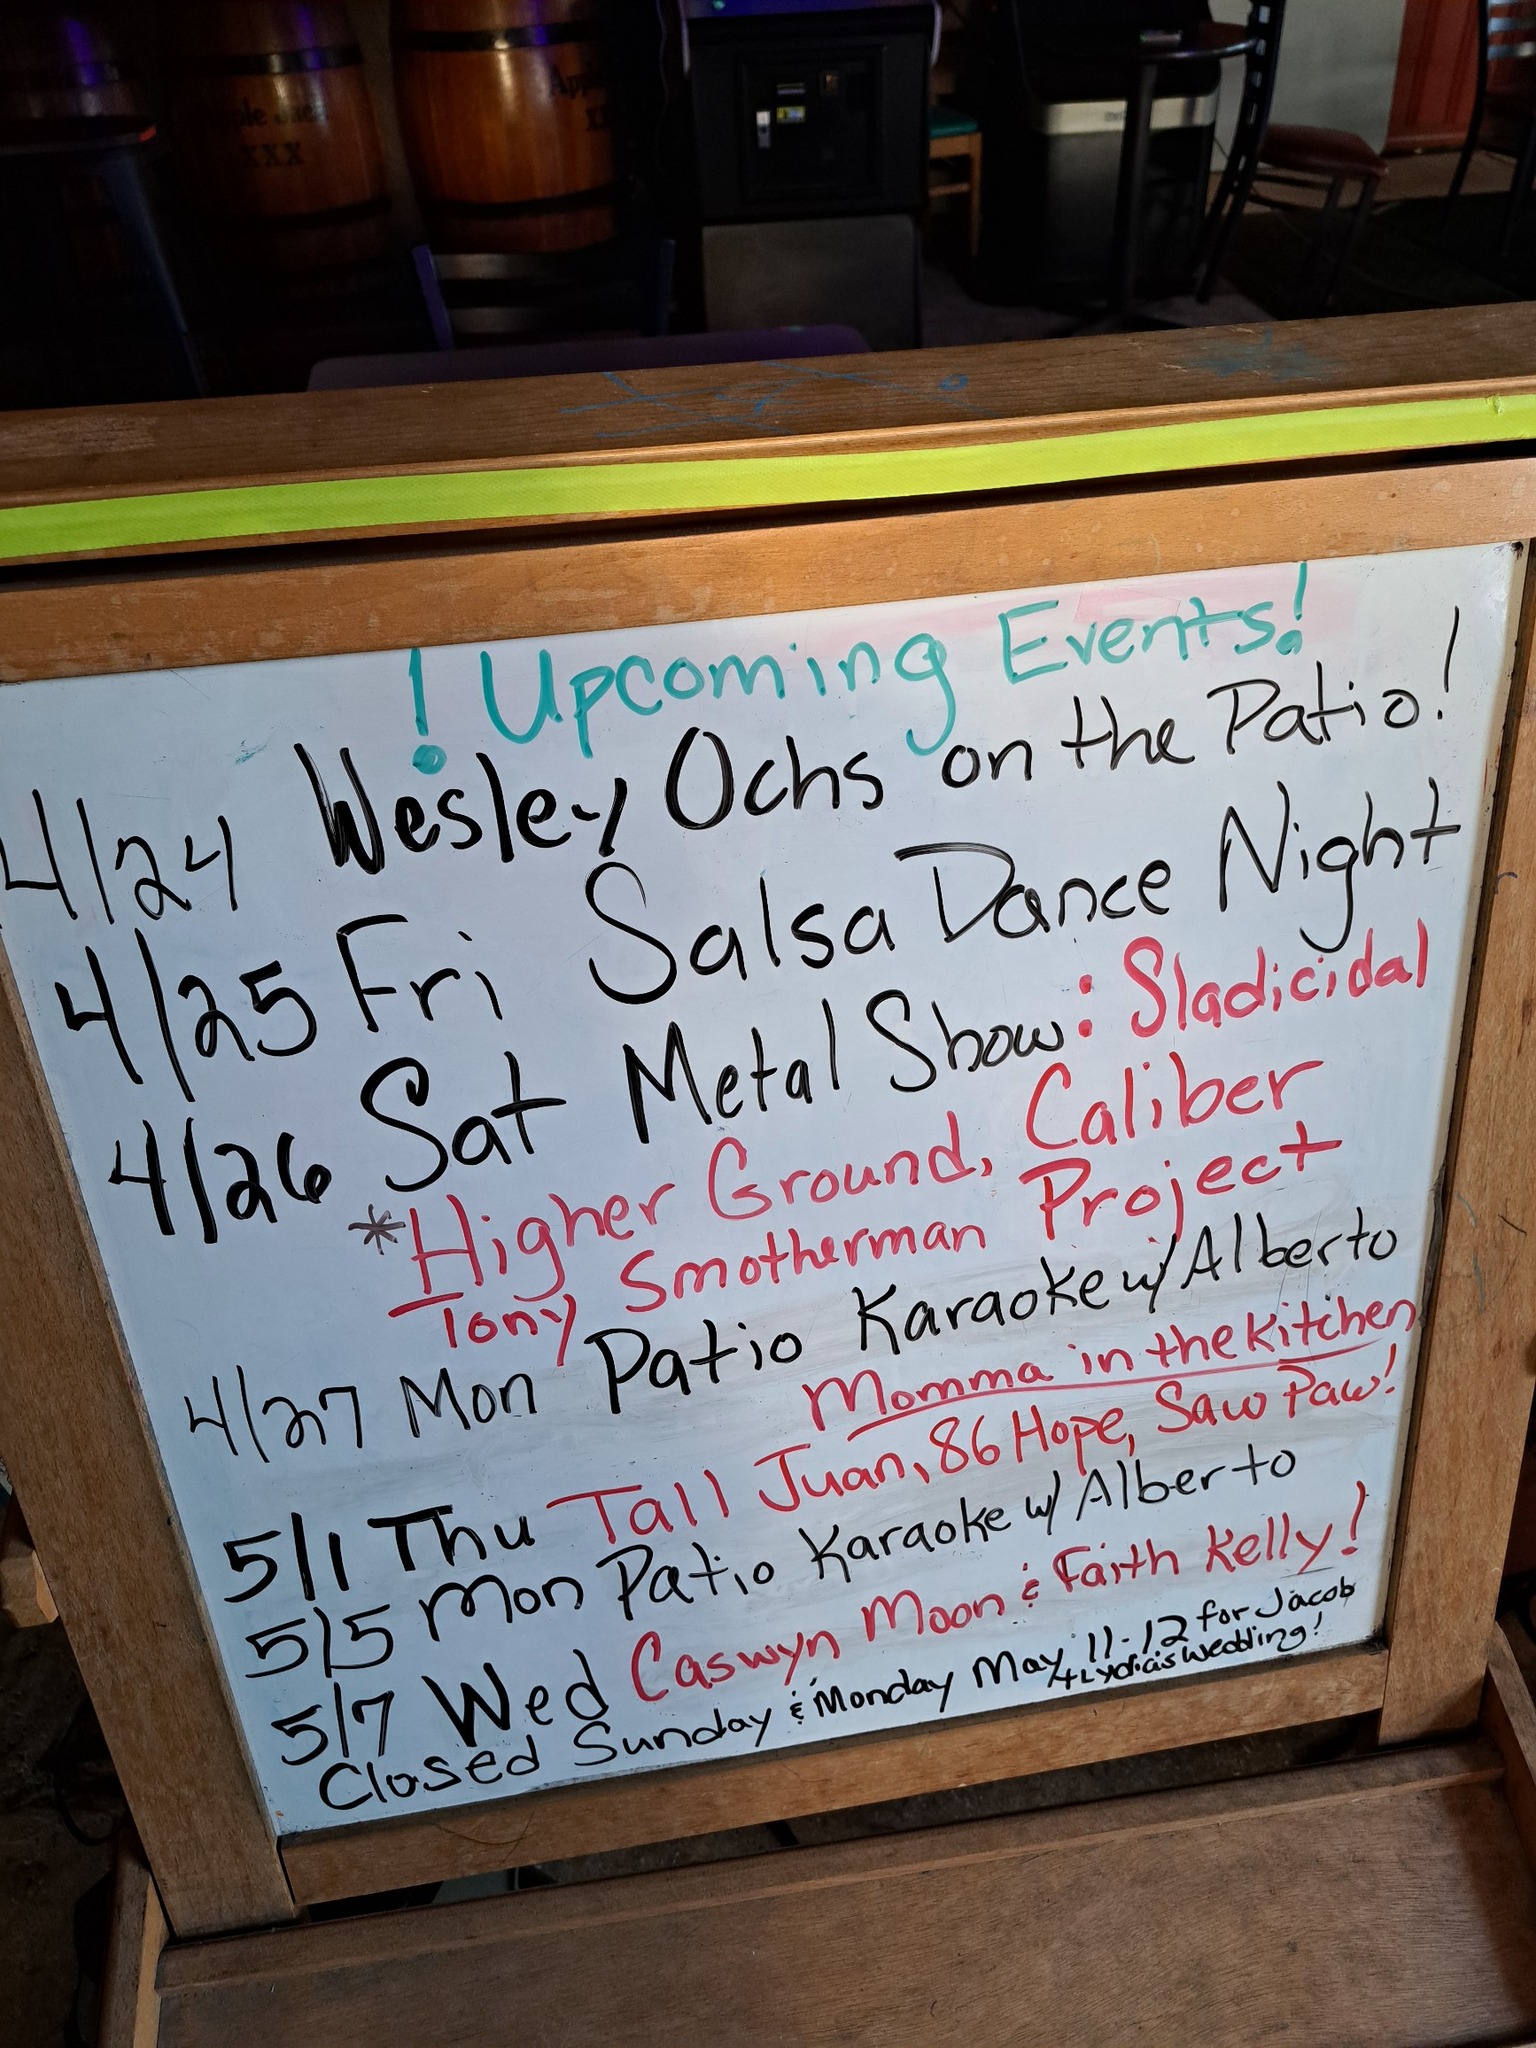 Apple Juice
XXX
! Upcoming Events!
4/24 Wesley Ochs on the Patio!
4/25 Fri Salsa Dance Night
4/26 Sat Metal Show: Sladicidal
*Higher Ground, Caliber
Tony Smotherman Project
4/27 Mon Patio Karaoke w/ Alberto
Momma in the kitchen
5/1 Thu Tall Juan, 86 Hope, Saw Paw!
5/5 Mon Patio Karaoke w/ Alberto
5/7 Wed Caswyn Moon & Faith Kelly!
Closed Sunday & Monday May 11-12 for Jacob
+ Lydia's Wedding!